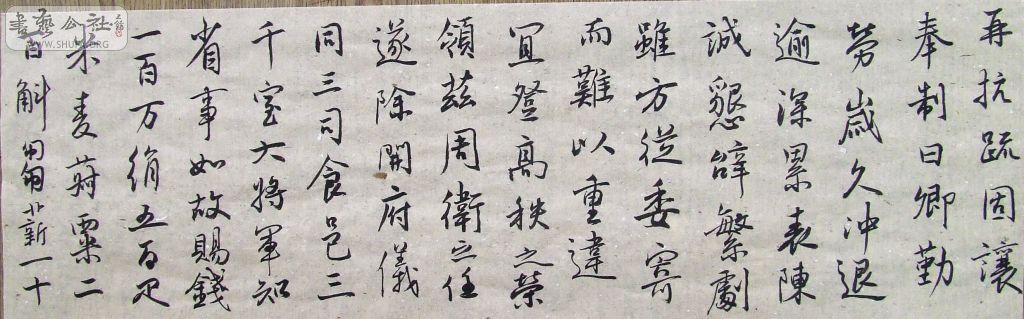 再抗疏固讓
奉制曰卿勤
勞歲久沖退
逾深累表陳
誠懇辭繁劇
雖方從委寄
而難以重違
宜登高秩之榮
領茲周衛之任
遂除開府儀
同三司食邑三
千室大將軍知
省事如故賜錢
一百万絹五百疋
米麦蒭粟二
百斛
薪一十
書藝公社